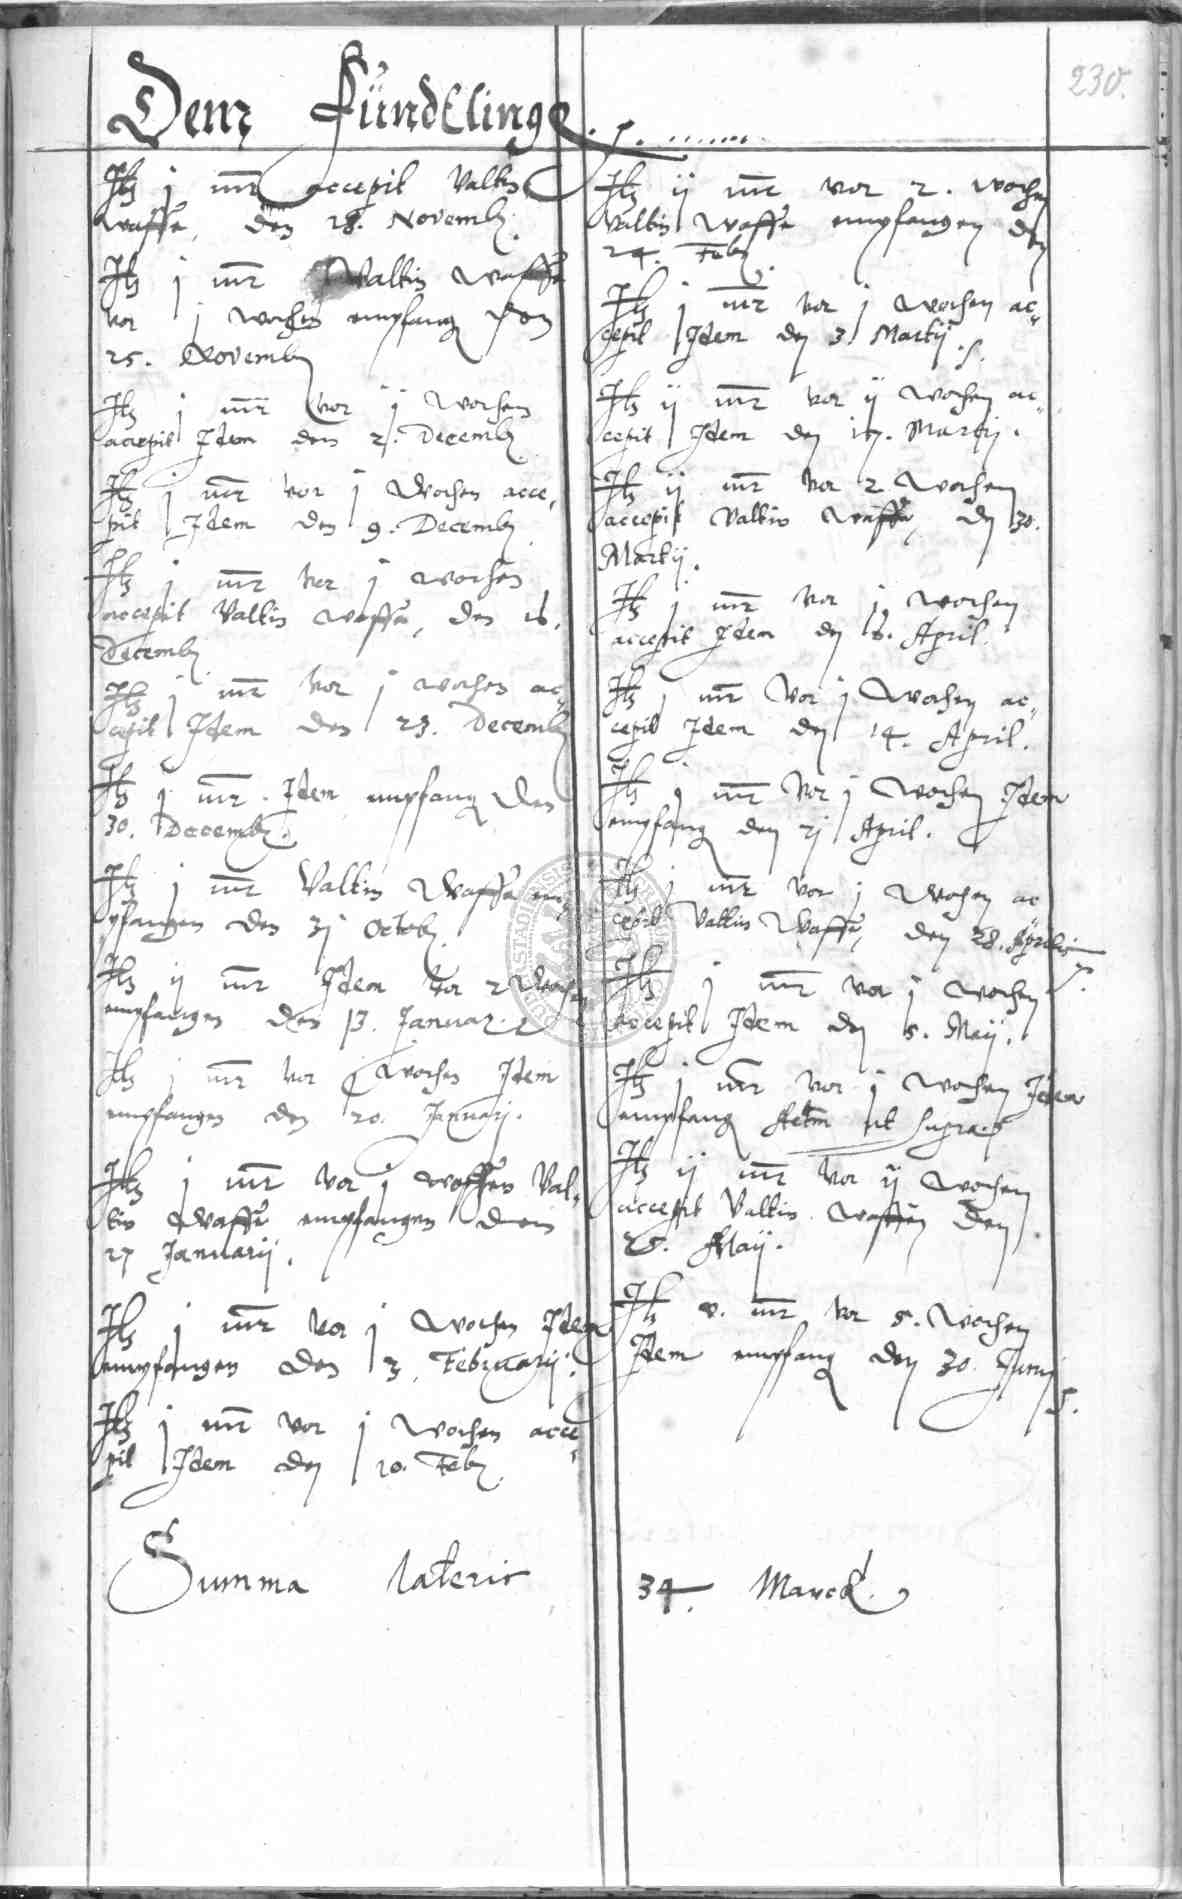 230.
Dem Fündtlinge.
Itz j mr accepit Valtin
Waffe, den 18. Novemb.
Itz j mr Valtin Waffe
vor j wochen empfang den
25. Novemb
Itz j mr vor j wochen
accepit Idem den 2. Decemb
Itz j mr vor j Wochen acce-
pit Idem den 9. Decemb
Itz j mr vor j wochen
accepit Valtin Waffe, den 16.
Decemb
Itz j mr vor j wochen ac-
cepit Idem den 23. Decemb
Itz j mr. Idem empfang den
30. Decemb.
Itz j mr Valtin Waffe em-
pfangen den 3j Octob.
Itz ij mr Idem vor 2 Wochen
empfangen den 13. Januar.
Itz j mr vor j Wochen Idem
empfangen den 20. Januarij.
Itz j mr vor j wochen Val-
tin Waffe empfangen den
27 Januarij.
Itz j mr vor j Wochen Idem
empfangen den 3. Februarij.
Itz j mr vor j wochen acce-
pit Idem den 10. Feb
Itz ij mr vor 2. wochen
Valtin Waffe empfangen den
24. Feb.
Itz j mr vor j wochen ac-
cepit Idem den 3 Martij.
Itz ij mr vor ij wochen ac-
cepit Idem den 17. Martij.
Itz ij mr vor 2 Wochen
accepit Valtin Waffe, den 30.
Martij.
Itz j mr vor j wochen
accepit Idem den 6. April
Itz j mr vor j Wochen ac-
cepit Idem den 14. April.
Itz j mr vor j Wochen Idem
empfang den 2j April.
Itz j mr vor j Wochen ac
cepit Valtin Waffe, den 28. Aprilis
Itz j mr vor j wochen
accepit Idem den 5. Maij.
Itz j mr vor j wochen Idem
empfang ut supra.
Itz ij mr vor ij wochen
accepit Valtin Waffen den
26. Maij.
Itz v. mr vor 5. wochen
Idem empfang den 30. Junij
Summa lateris 34. Marck.